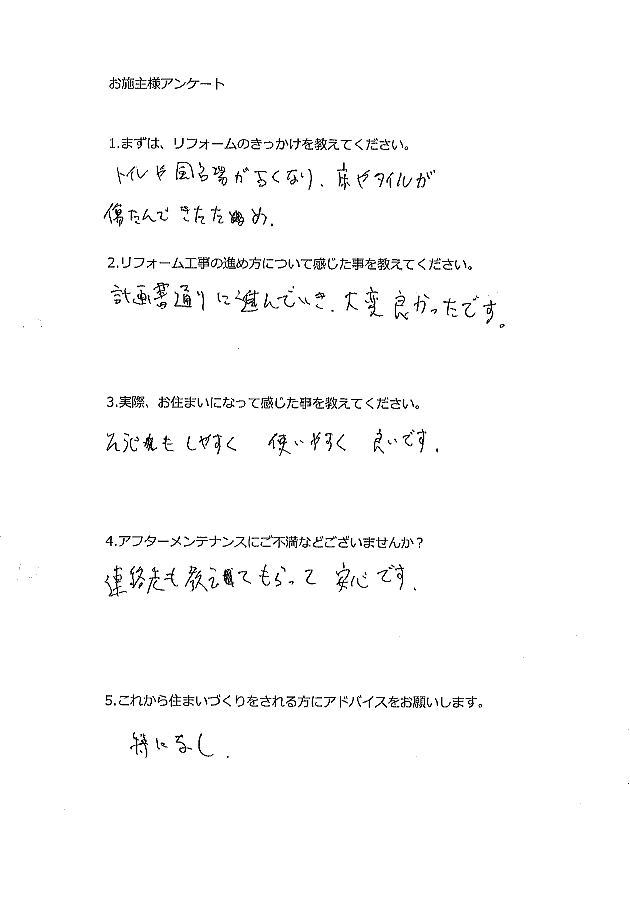 お施主様アンケート
1.まずは、リフォームのきっかけを教えてください。
トイレや風呂場が古くなり、床やタイルが
傷たんできたため.
2.リフォーム工事の進め方について感じた事を教えてください。
計画書通りに進んでいき、大変良かったです。
3.実際、お住まいになって感じた事を教えてください。
そうじもしやすく 使いやすく 良いです.
4.アフターメンテナンスにご不満などございませんか?
連絡先も教えてもらって 安心です.
5.これから住まいづくりをされる方にアドバイスをお願いします。
特になし.